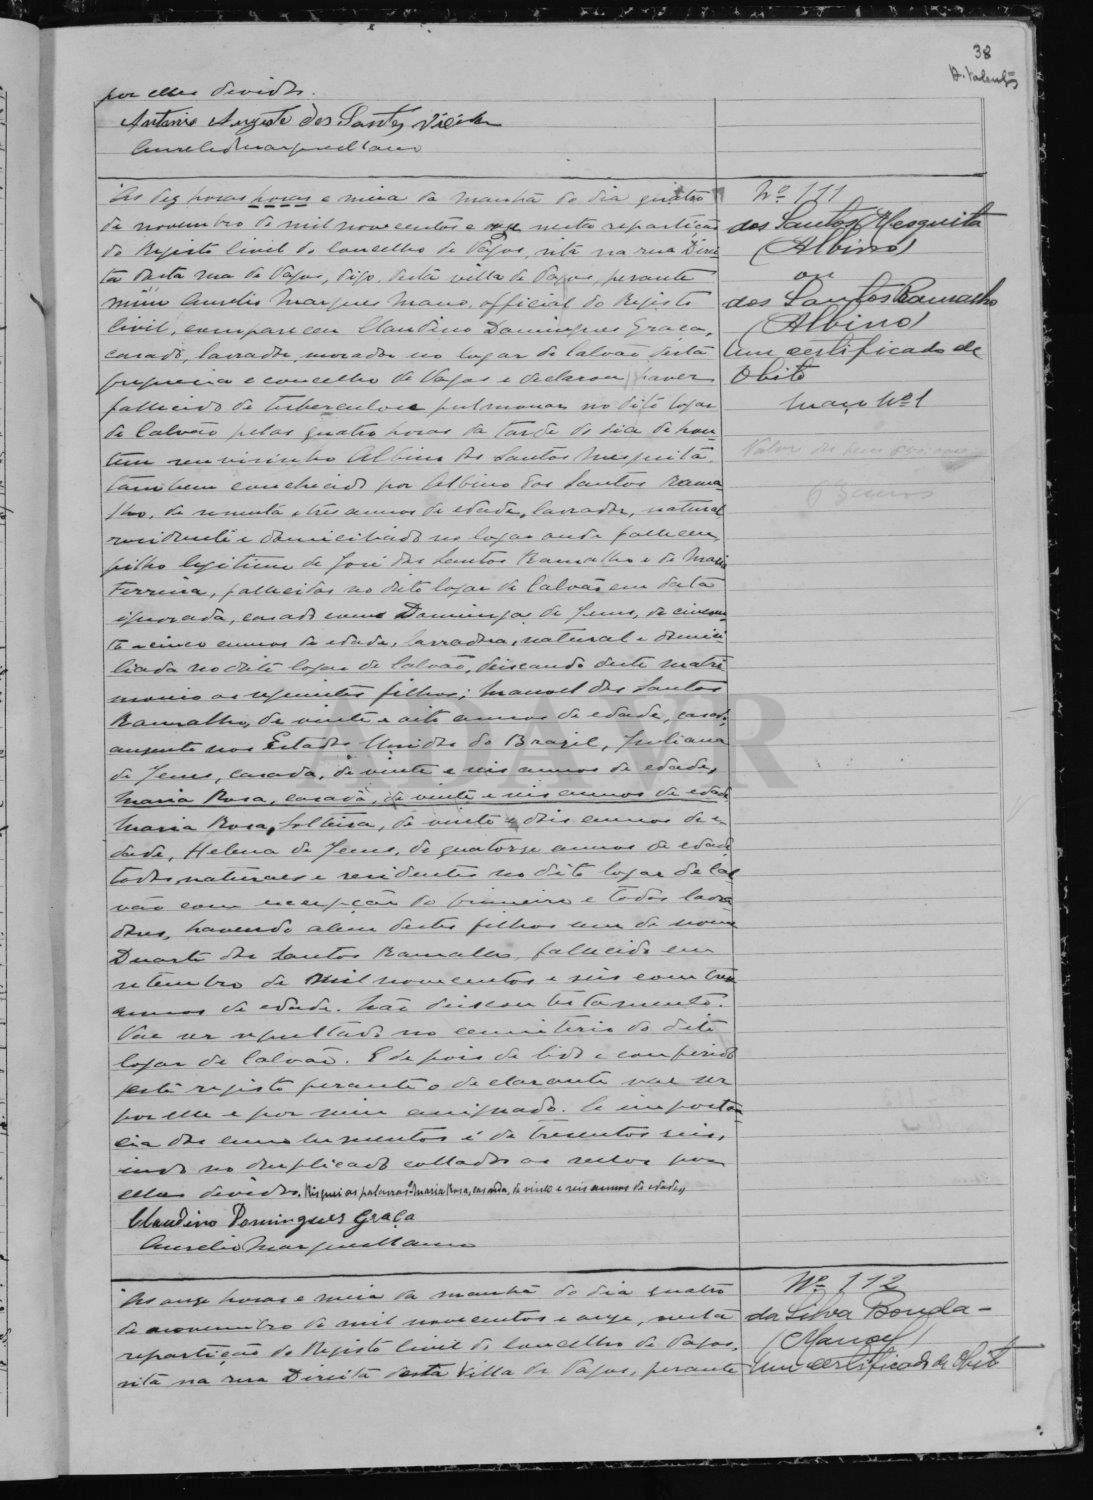 38
por elles devidos.
Antonio Augusto dos Santos Victor
Aurelio Marques Mano
Nº 111
dos Santos Mesquita
(Albino)
ou
dos Santos Ramalho
(Albino)
Um certificado de
Obito
Maço Nº 1
As dez horas horas e meia da manhã do dia quatro
de novembro de mil novecentos e onze nesta repartição
do Registo Civil do concelho de Vagos, sita na rua Direi
ta desta rua de Vagos, digo, desta villa de Vagos, perante
mim Aurelio Marques Mano, official do Registo
Civil, compareceu Claudino Domingues Graça,
casado, lavrador, morador no logar de Calvão desta
freguesia e concelho de Vagos e declarou haver
fallecido de tuberculose pulmonar no dito logar
de Calvão pelas quatro horas da tarde do dia de hon
tem seu visinho Albino dos Santos Mesquita
tambem conhecido por Albino dos Santos Rama
lho, de sessenta e três annos de edade, lavrador, natural
residente e domiciliado no logar onde falleceu,
filho legitimo de José dos Santos Ramalho e de Maria
Ferreira, fallecidos no dito logar de Calvão em data
ignorada, casado com Domingas de Jesus, de cincoen
ta e cinco annos de edade, lavradora, natural e domici
liada no dito logar de Calvão, deixando deste matri
monio os seguintes filhos; Manoel dos Santos
Ramalho, de vinte e oito annos de edade, casado,
ausente nos Estados Unidos do Brazil, Juliana
de Jesus, casada, de vinte e seis annos de edade,
Maria Rosa, casada, de vinte e seis annos de edade
Maria Rosa, solteira, de vinte e dois annos de e
dade, Helena de Jesus, de quatorze annos de edade
todos naturaes e residentes no dito logar de Cal
vão com excepção do primeiro e todos lavra
dores, havendo alem destes filhos um de nome
Duarte dos Santos Ramalho, fallecido em
setembro de mil novecentos e seis com três
annos de edade. Não deixou testamento.
Vae ser sepultado no cemiterio do dito
logar de Calvão. E depois de lido e conferido
este registo perante o declarante vae ser
por elle e por mim assignado. A importan
cia dos emolumentos é de tresentos reis,
indo no duplicado collados os sellos por
elles devidos. Risquei as palavras Maria Rosa, casada, de vinte e seis annos de edade,
Claudino Domingues Graça
Aurelio Marques Mano
Nº 112
da Silva Bouda-
(Manoel)
Um certificado de Obito
As onze horas e meia da manhã do dia quatro
de novembro de mil novecentos e onze, nesta
repartição do Registo Civil do concelho de Vagos,
sita na rua Direita desta Villa de Vagos, perante
ADAVR